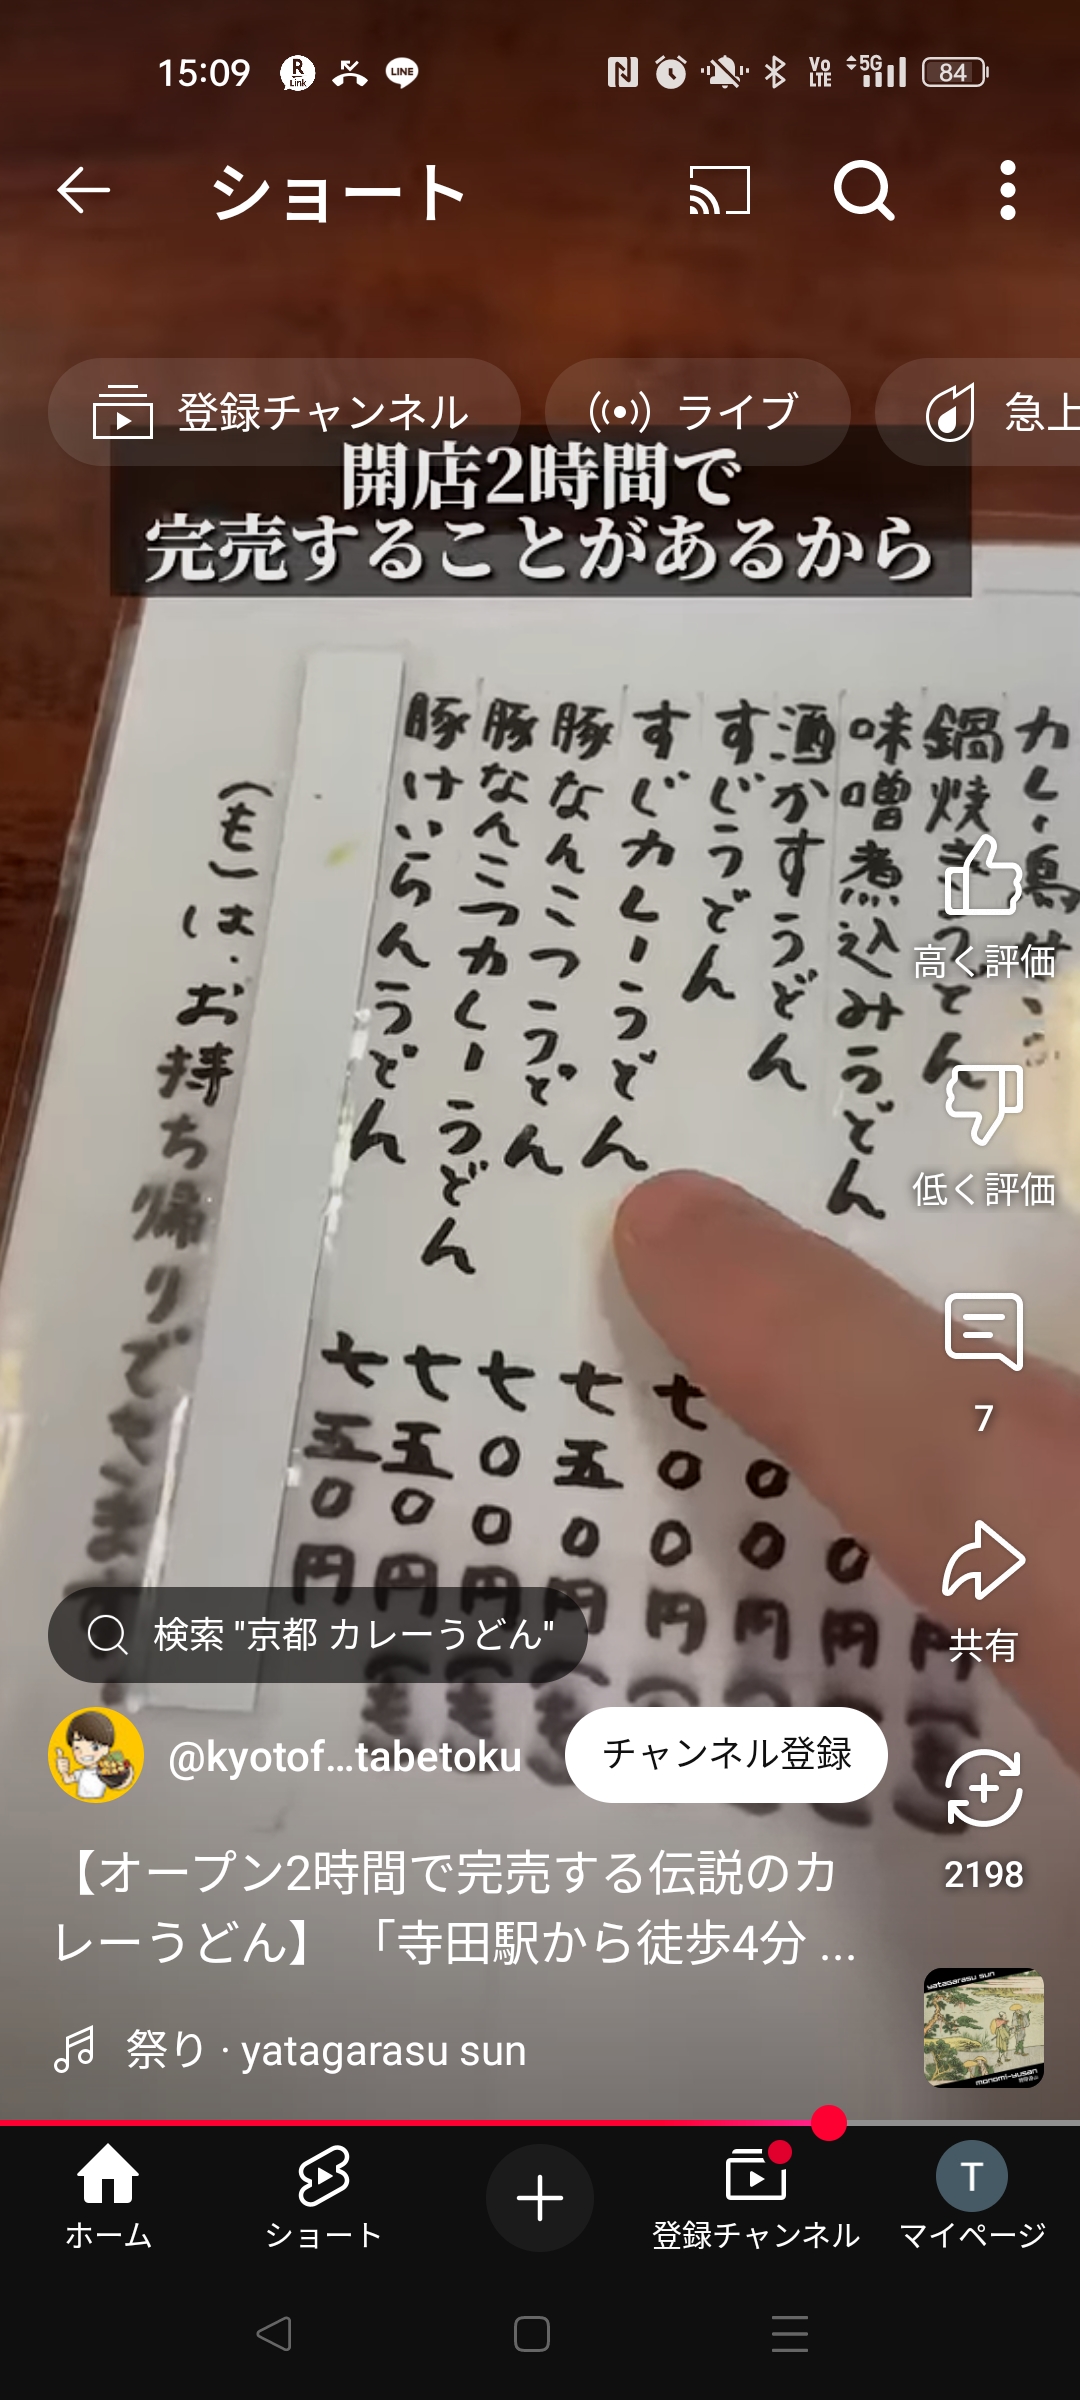 15:09
R Link
LINE
Vo LTE
5G
84
ショート
登録チャンネル
ライブ
急上
開店2時間で
完売することがあるから
鍋焼きうどん
味噌煮込みうどん
酒かすうどん
すじうどん
すじカレーうどん
豚なんこつうどん
豚なんこつカレーうどん
豚けいらんうどん
(も)は、お持ち帰りできます
0円
00円
七00円
七五0円
七00円
七五0円
七五0円
高く評価
低く評価
7
共有
2198
検索 "京都 カレーうどん"
@kyotof...tabetoku
チャンネル登録
【オープン2時間で完売する伝説のカ
レーうどん】 「寺田駅から徒歩4分 ...
祭り · yatagarasu sun
yatagarasu sun
monomi-yusan
ホーム
ショート
登録チャンネル
T
マイページ